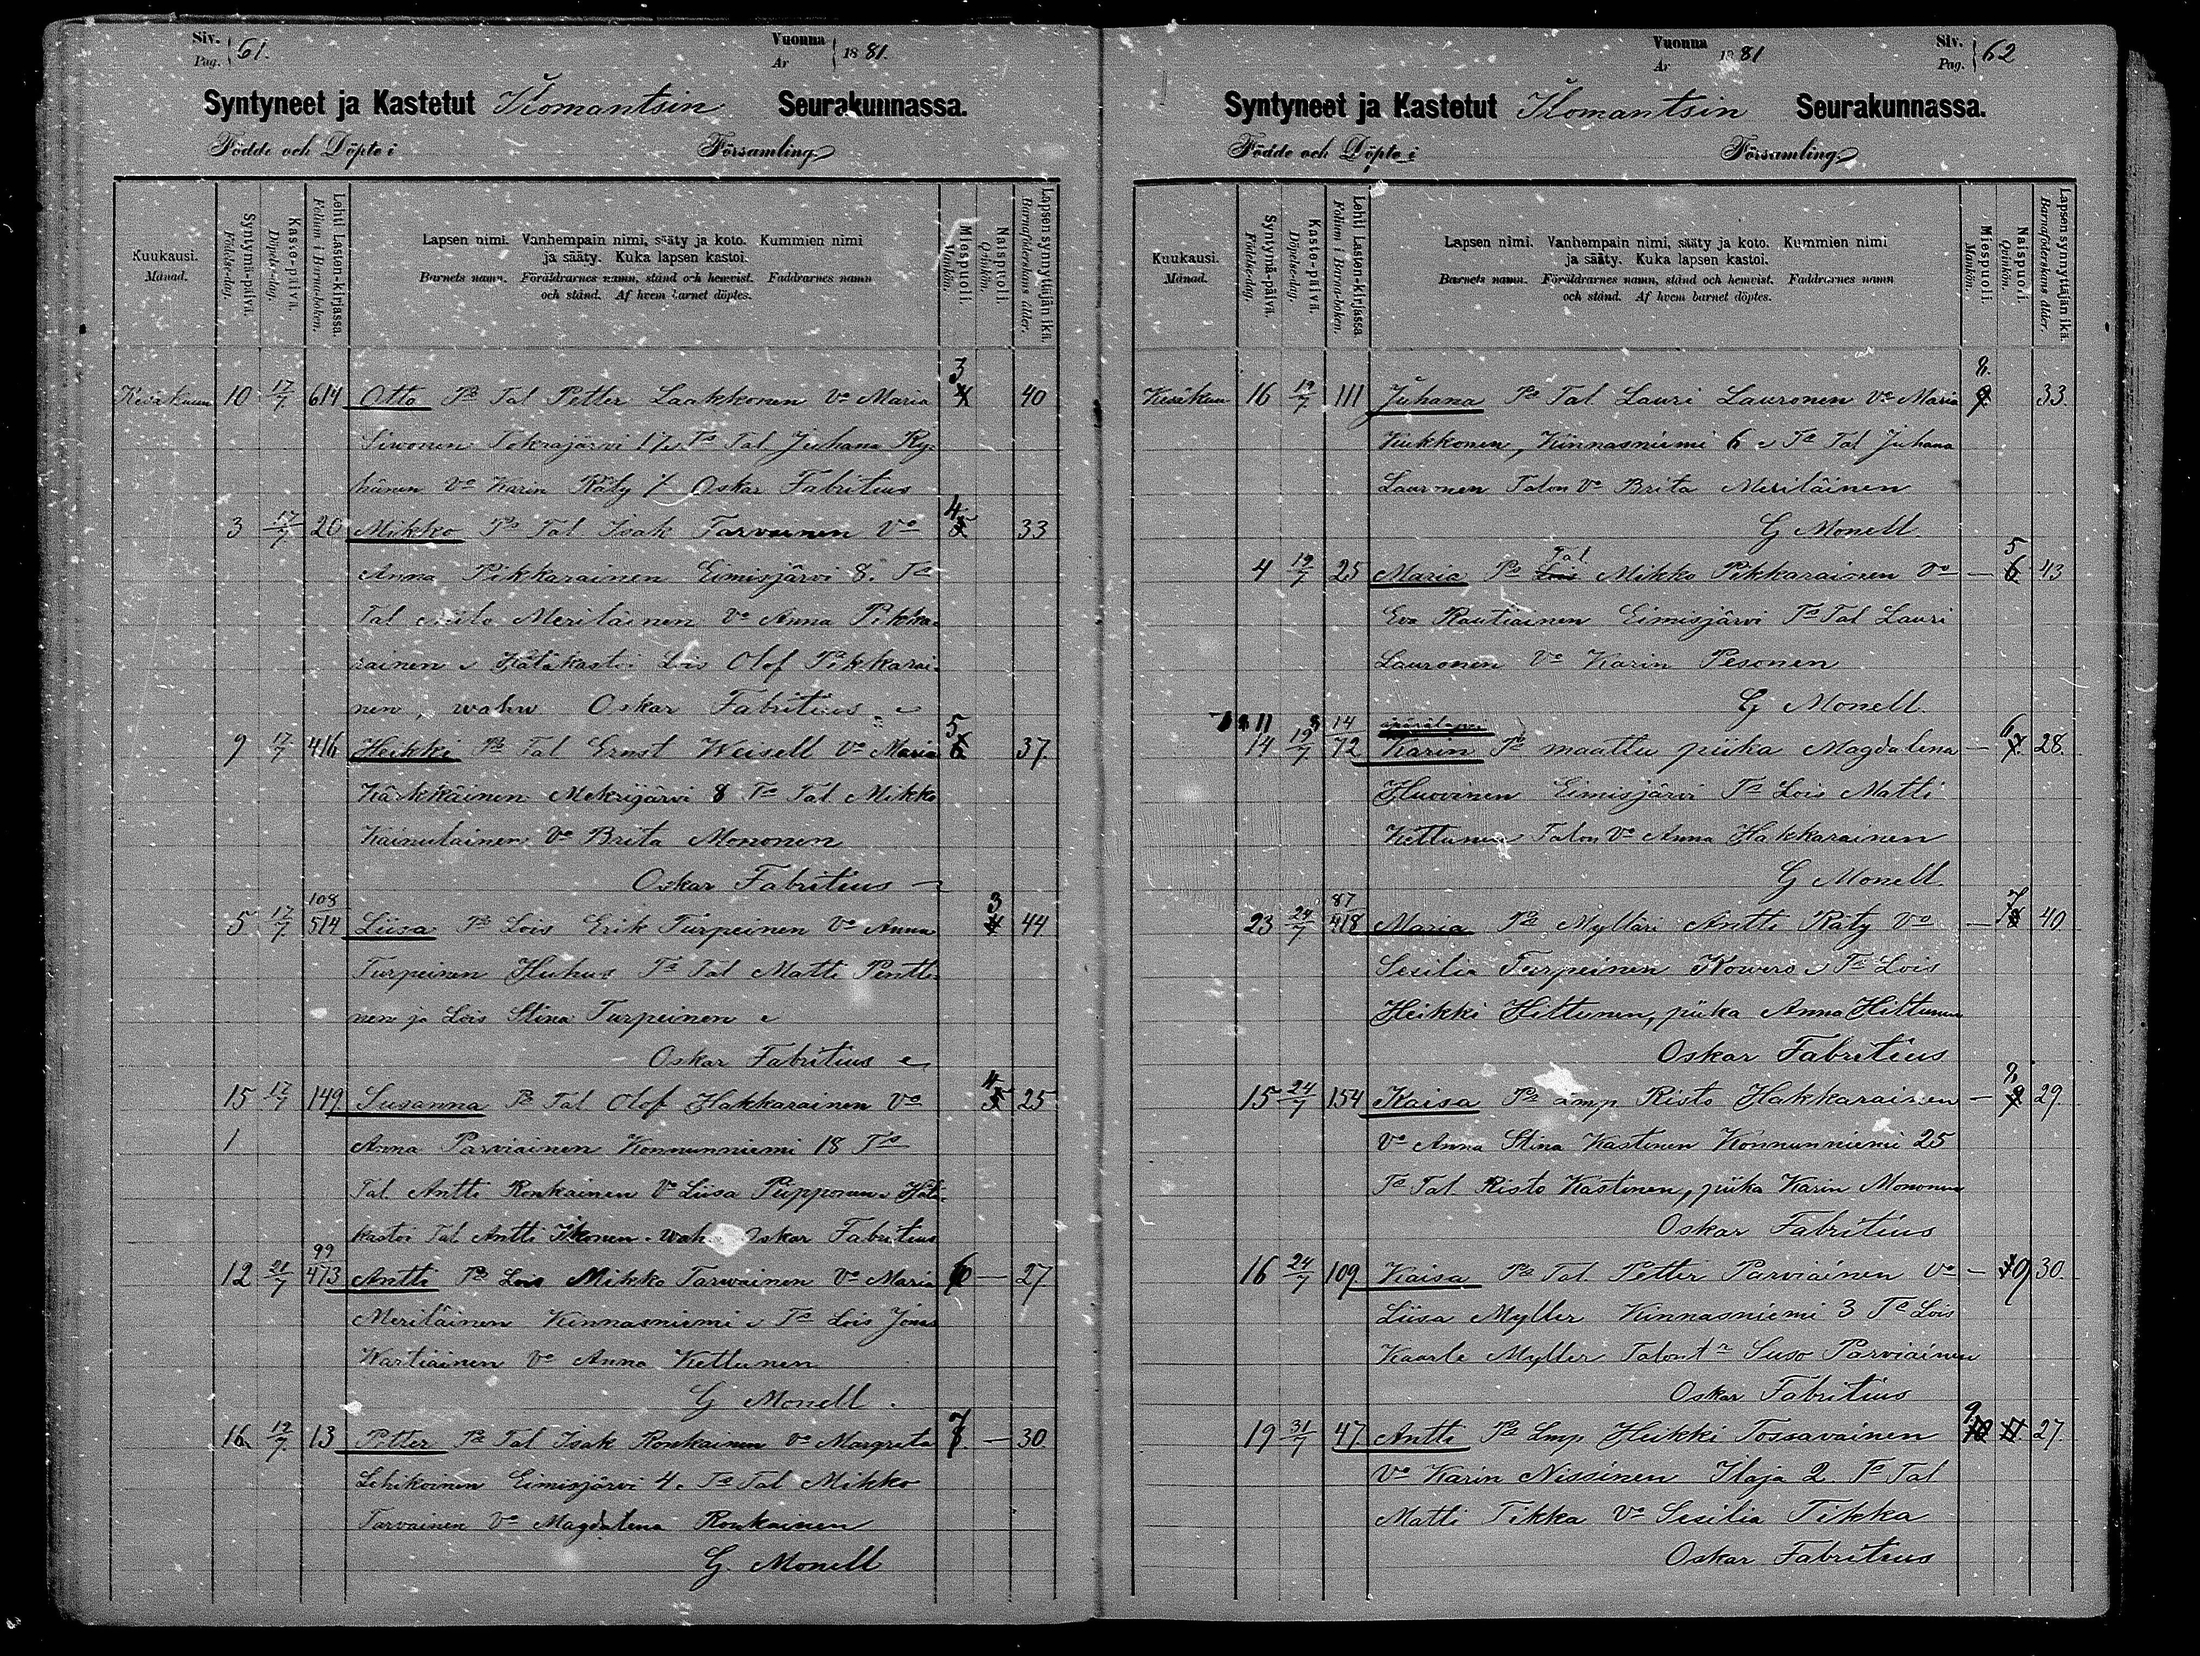 Siv. Pag. 61. Vuonna År 1881.
Syntyneet ja Kastetut Ilomantsin Seurakunnassa.
Födde och Döpte i Församling
Kuukausi. Månad.
Syntymä-päivä. Födelse-dag.
Kaste-päivä. Döpelse-dag.
Lehti Lasten-kirjassa. Folium i Barna-boken.
Lapsen nimi. Vanhempain nimi, sääty ja koto. Kummien nimi
ja sääty. Kuka lapsen kastoi.
Barnets namn. Föräldrarnes namn, stånd och hemvist. Faddrarnes namn
och stånd. Af hvem barnet döptes.
Miespuoli. Mankön.
Naispuoli. Qvinkön.
Lapsen synnyttäjän ikä. Barnaföderskans ålder.
Kesäkuun 10 17/7 614 Otto Ps Tal Petter Laakkonen Vo Maria 3 4 40
Siwonen Tokrajärvi 17 Ts Tal Juhana Ry-
hänen Vo Karin Räty / Oskar Fabritius
3 17/7 20 Mikko Ps Tal Isak Tarvainen Vo 4 5 33
Anna Pikkarainen Eimisjärvi 8. Ts
Tal Niilo Meriläinen Vo Anna Pikka-
rainen Hätäkastoi Lois Olof Pikkarai-
nen, wahw Oskar Fabritius
9 17/7 416 Heikki Ps Tal Ernst Weisell Vo Maria 5 6 37.
Kärkkäinen Mekrijärvi 8 Ts Tal Mikko
Kainulainen Vo Brita Mononen
Oskar Fabritius
5 17/7 108/514 Liisa Ps Lois Erik Turpeinen Vo Anna 3 4 44
Turpeinen Huhus Ts Tal Matti Pentti-
nen ja Lois Stina Turpeinen
Oskar Fabritius
15 17/7 149 Susanna Ps Tal Olof Hakkarainen Vo 4 5 25
1 Anna Parviainen Konnunniemi 18 Ts
Tal Antti Ronkainen Vo Liisa Piipponen Hät.
kastoi Tal Antti Ikonen. wah Oskar Fabritius
12 21/7 99/473 Antti Ps Lois Mikko Tarwainen Vo Maria 6 — 27
Meriläinen Kinnasniemi Ts Lois Jonas
Wartiainen Vo Anna Kettunen
G Monell.
16 19/7 13 Petter Ps Tal Isak Ronkainen Vo Margreta 7 8 — 30
Lehikoinen Eimisjärvi 4. Ts Tal Mikko
Tarvainen Vo Magdalena Ronkainen
G. Monell
Vuonna År 1881 Siv. Pag. 62
Syntyneet ja Kastetut Ilomantsin Seurakunnassa.
Födde och Döpte i Församling
Kuukausi. Månad.
Syntymä-päivä. Födelse-dag.
Kaste-päivä. Döpelse-dag.
Lehti Lasten-kirjassa. Folium i Barna-boken.
Lapsen nimi. Vanhempain nimi, sääty ja koto. Kummien nimi
ja sääty. Kuka lapsen kastoi.
Barnets namn. Föräldrarnes namn, stånd och hemvist. Faddrarnes namn
och stånd. Af hvem barnet döptes.
Miespuoli. Mankön.
Naispuoli. Qvinkön.
Lapsen synnyttäjän ikä. Barnaföderskans ålder.
Kesäkuu 16 19/7 111 Juhana Ps Tal Lauri Lauronen Vo Maria 8. 9 33.
Kukkonen, Kinnasniemi 6 Ts Tal Juhana
Lauronen Talon Vo Brita Meriläinen
G Monell.
4 19/7 25 Maria Ps Lois Tal Mikko Pikkarainen Vo — 5 6 43
Eva Rautiainen Eimisjärvi Ts Tal Lauri
Lauronen Vo Karin Pesonen
G Monell.
äpärälapsi
14 19/7 14/72 Karin Ps maattu piika Magdalena — 6 7 28.
Huovinen Eimisjärvi Ts Lois Matti
Kettunen Talon Vo Anna Hakkarainen
G Monell.
23 24/7 87/418 Maria Ps Mylläri Antti Räty Vo — 7 8 40
Sesilia Turpeinen Kowero Ts Lois
Heikki Hiltunen, piika Anna Hiltunen
Oskar Fabritius
15 24/7 154 Kaisa Ps Lmp Risto Hakkarainen — 8 9 29.
Vo Anna Stina Kastinen Konnunniemi 25
Ts Tal Risto Kastinen, piika Karin Mononen
Oskar Fabritius
16 24/7 109 Kaisa Ps Tal. Petter Parviainen Vo — 10 9 30.
Liisa Myller Kinnasniemi 3 Ts Lois
Kaarle Myller Talont r Suso Parviainen
Oskar Fabritius
19 31/7 47 Antti Ps Lmp Heikki Tossavainen 9 10 11. 27.
Vo Karin Nissinen Ilaja 2. Ts Tal
Matti Tikka Vo Sesilia Tikka
Oskar Fabritius